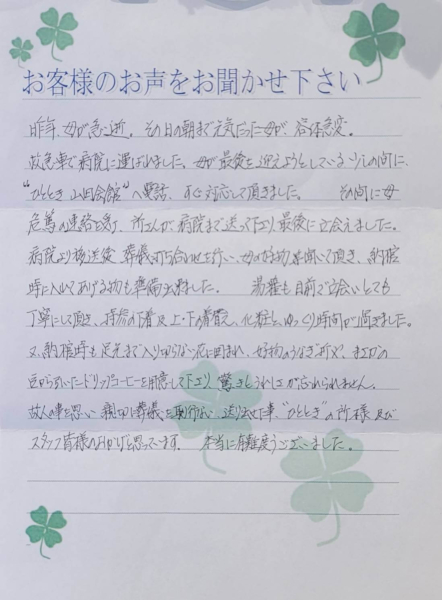 お客様のお声をお聞かせ下さい
昨年、母が急逝。その日の朝まで元気だった母が、容体急変。
救急車で病院に運ばれました。母が最後を迎えようとしている
"ひととき 山田会館"へ電話、対応して頂きました。その間に母
危篤の連絡 所さんが病院まで送って下さり最後に立会えました。
病院より搬送後 葬儀打ち合わせを行い、母の好物を聞いて頂き、納棺
時に入れてあげる物も準備出来ました。 湯灌も目前で立会いとても
丁寧にして頂き、持参の下着及上・下の着替え、化粧と、ゆっくり時間が過ぎました。
又、納棺時も足元まで入り切らない花に囲まれ、好物のうなぎ
豆から引いたドリップコーヒーを用意して下さり 驚きとうれしさが忘れられません。
故人の事を思い 親切に葬儀を取行ない 送り出せた事、"ひととき"の所様 及び
スタッフ皆様のおかげと思っています。 本当に有難度うございました。